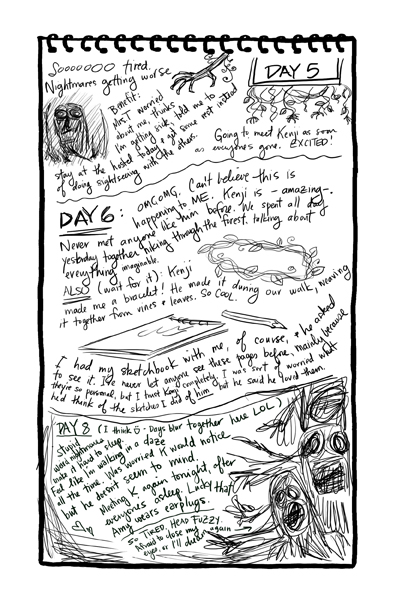 Sooooooo tired.
Nightmares getting worse
DAY 5
Benefit:
Mrs. T worried
about me, thinks
I'm getting sick, told me to
stay at the hostel today & get some rest instead
of doing sightseeing with the others.
Going to meet Kenji as soon
as everyone's gone. EXCITED!
DAY 6: OMG OMG. Can't believe this is
happening to ME. Kenji is -amazing-.
Never met anyone like him before. We spent all day
yesterday together hiking through the forest, talking about
everything imaginable.
ALSO (wait for it): Kenji
made me a bracelet! He made it during our walk, weaving
it together from vines & leaves. So COOL.
I had my sketchbook with me, of course, & he asked
to see it. I've never let anyone see these pages before, mainly because
they're so personal, but I trust Kenji completely. I was sort of worried what
he'd think of the sketches I did of him but he said he loved them.
DAY 8 (I think :) - Days blur together here LOL)
Stupid
weird nightmares
make it hard to sleep.
Feel like I'm walking in a daze
all the time. Was worried K would notice
but he doesn't seem to mind.
Meeting K again tonight, after
everyone's asleep. Lucky that
Amy wears earplugs.
SO TIRED. HEAD FUZZY.
Afraid to close my
eyes, or I'll dream again